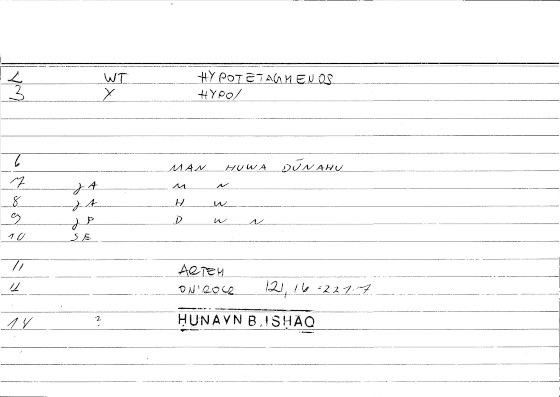 2 WT HYPOTETAGMENOS
3 Y HYPO/
6 MAN HUWA DŪNAHU
7 JA M N
8 JA H W
9 JP D W N
10 SE
11 ARTEM
ON'ROCR 121,16 = 221.7
14 ? HUNAYN B.ISHAQ